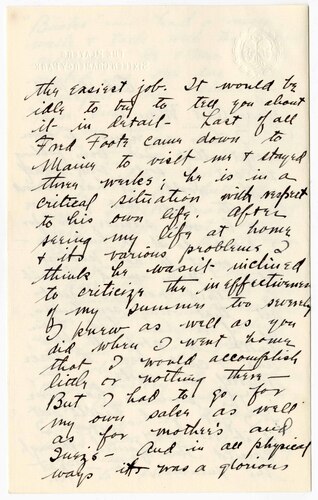 the easiest job. It would be
idle to try to tell you about
it in detail - Last of all
Fred Foote came down to
Maine to visit me & stayed
three weeks; he is in a
critical situation with respect
to his own life. After
seeing my life at home
& its various problems I
think he wasn't inclined
to criticize the ineffectiveness
of my summer too severely
I knew as well as you
did when I went home
that I would accomplish
little or nothing there -
But I had to go, for
my own sake as well
as for mother's and
And in all physical
ways it was a glorious